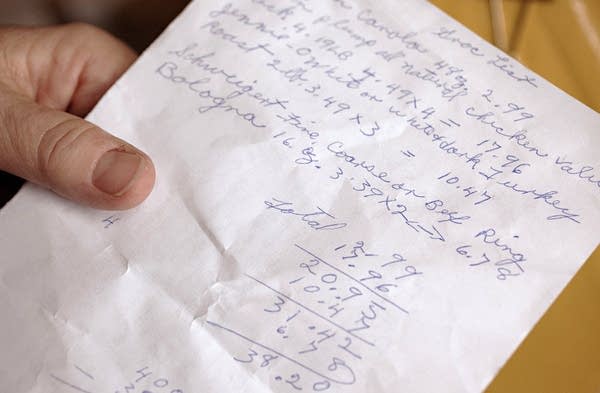 Groc List
Canola 48 oz 2.99
plump all natural chicken value
Pack 4.19 LB 4.49 x 4 = 17.96
Jennie-O White or white & dark Turkey
Roast 2 lb. 3.49 x 3 = 10.47
Schweigert Fine, Coarse or Beef Ring
Bologna 16 oz. 3.39 x 2 => 6.78
Total 2.99
17.96
20.95
10.47
31.42
6.78
38.20
4
400